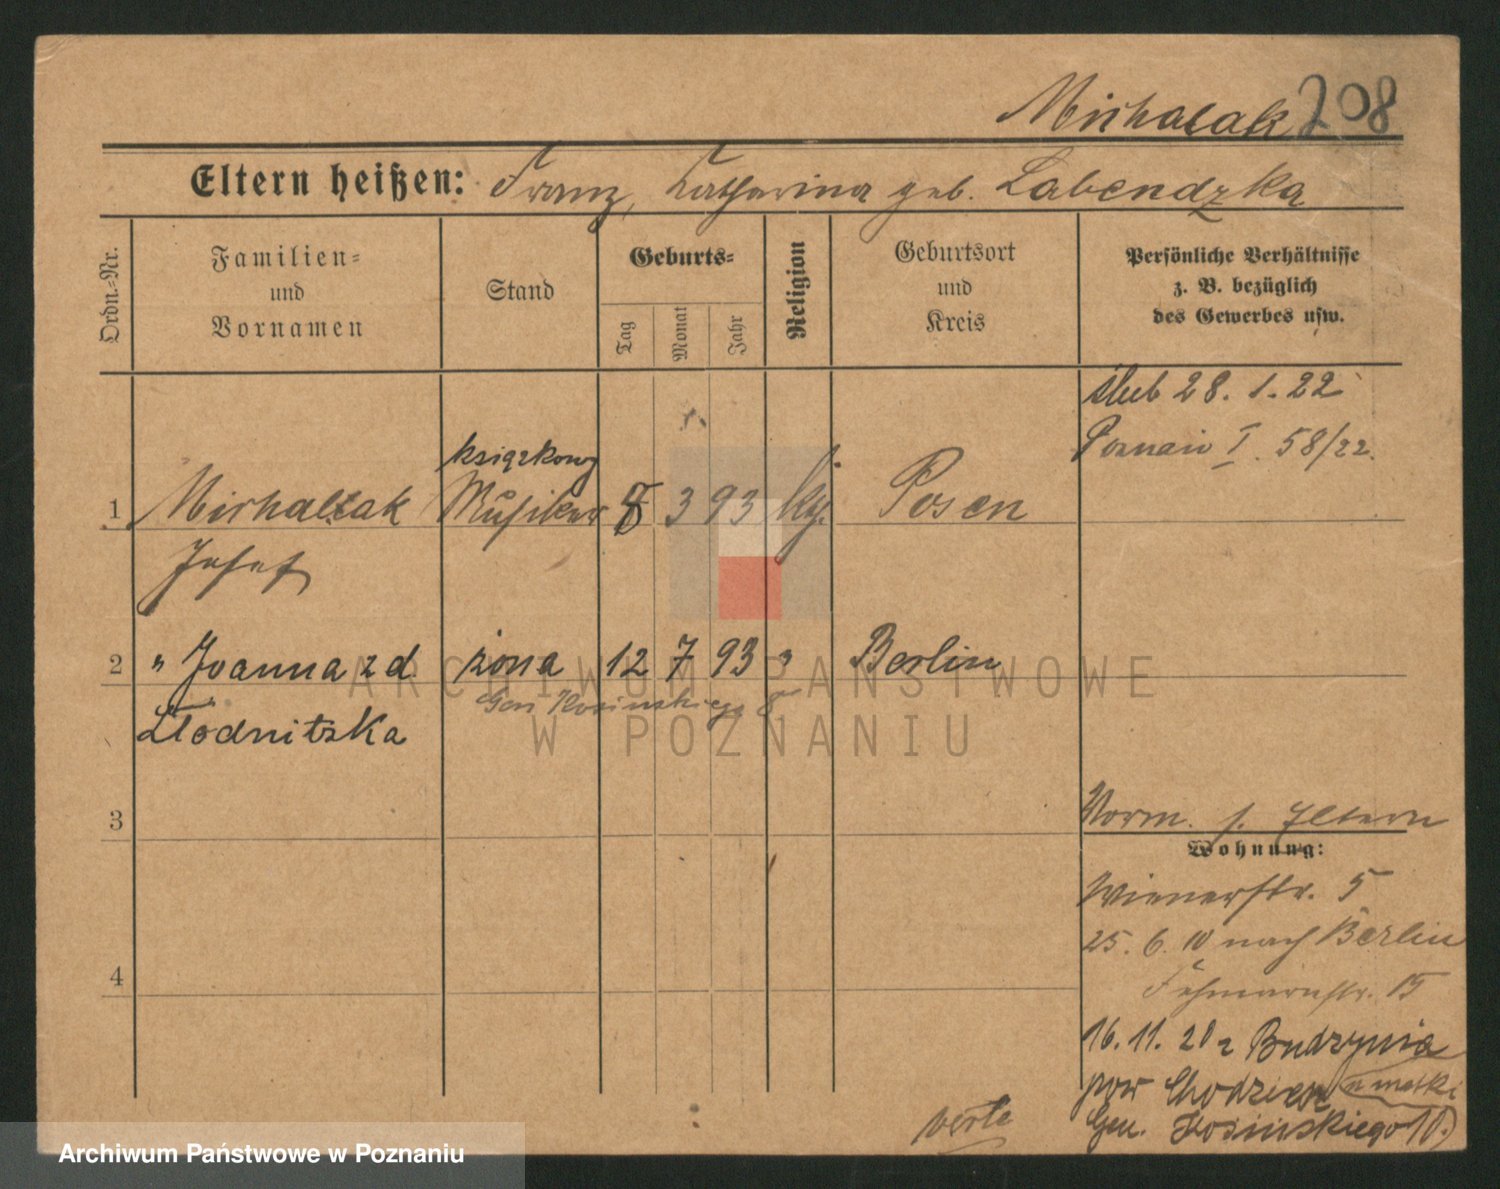 Michalak 208
Eltern heißen: Franz, Catharina geb. Labendzka
Ordn.-Nr.
Familien-
und
Vornamen
Stand
Geburts-
Tag
Monat
Jahr
Religion
Geburtsort
und
Kreis
Persönliche Verhältnisse
z. B. bezüglich
des Gewerbes usw.
ślub 28. 1. 22
Poznań I. 58/22.
książkowy
1 Michalak Musiker 8 3 93 Posen
Josef
2 " Joanna z d. żona 12 7 93 Berlin
Gen Kosinskiego 8
Zlodnitzka
3
Vorm. s. Eltern
Wohnung:
Wienerstr. 5
25. 6. 10 nach Berlin
4
Fehmarnstr. 15
16. 11. 20 z Budzynia
pow Chodzież u matki
Gen. Kosinskiego 10.)
verte
ARCHIWUM PAŃSTWOWE
W POZNANIU
Archiwum Państwowe w Poznaniu